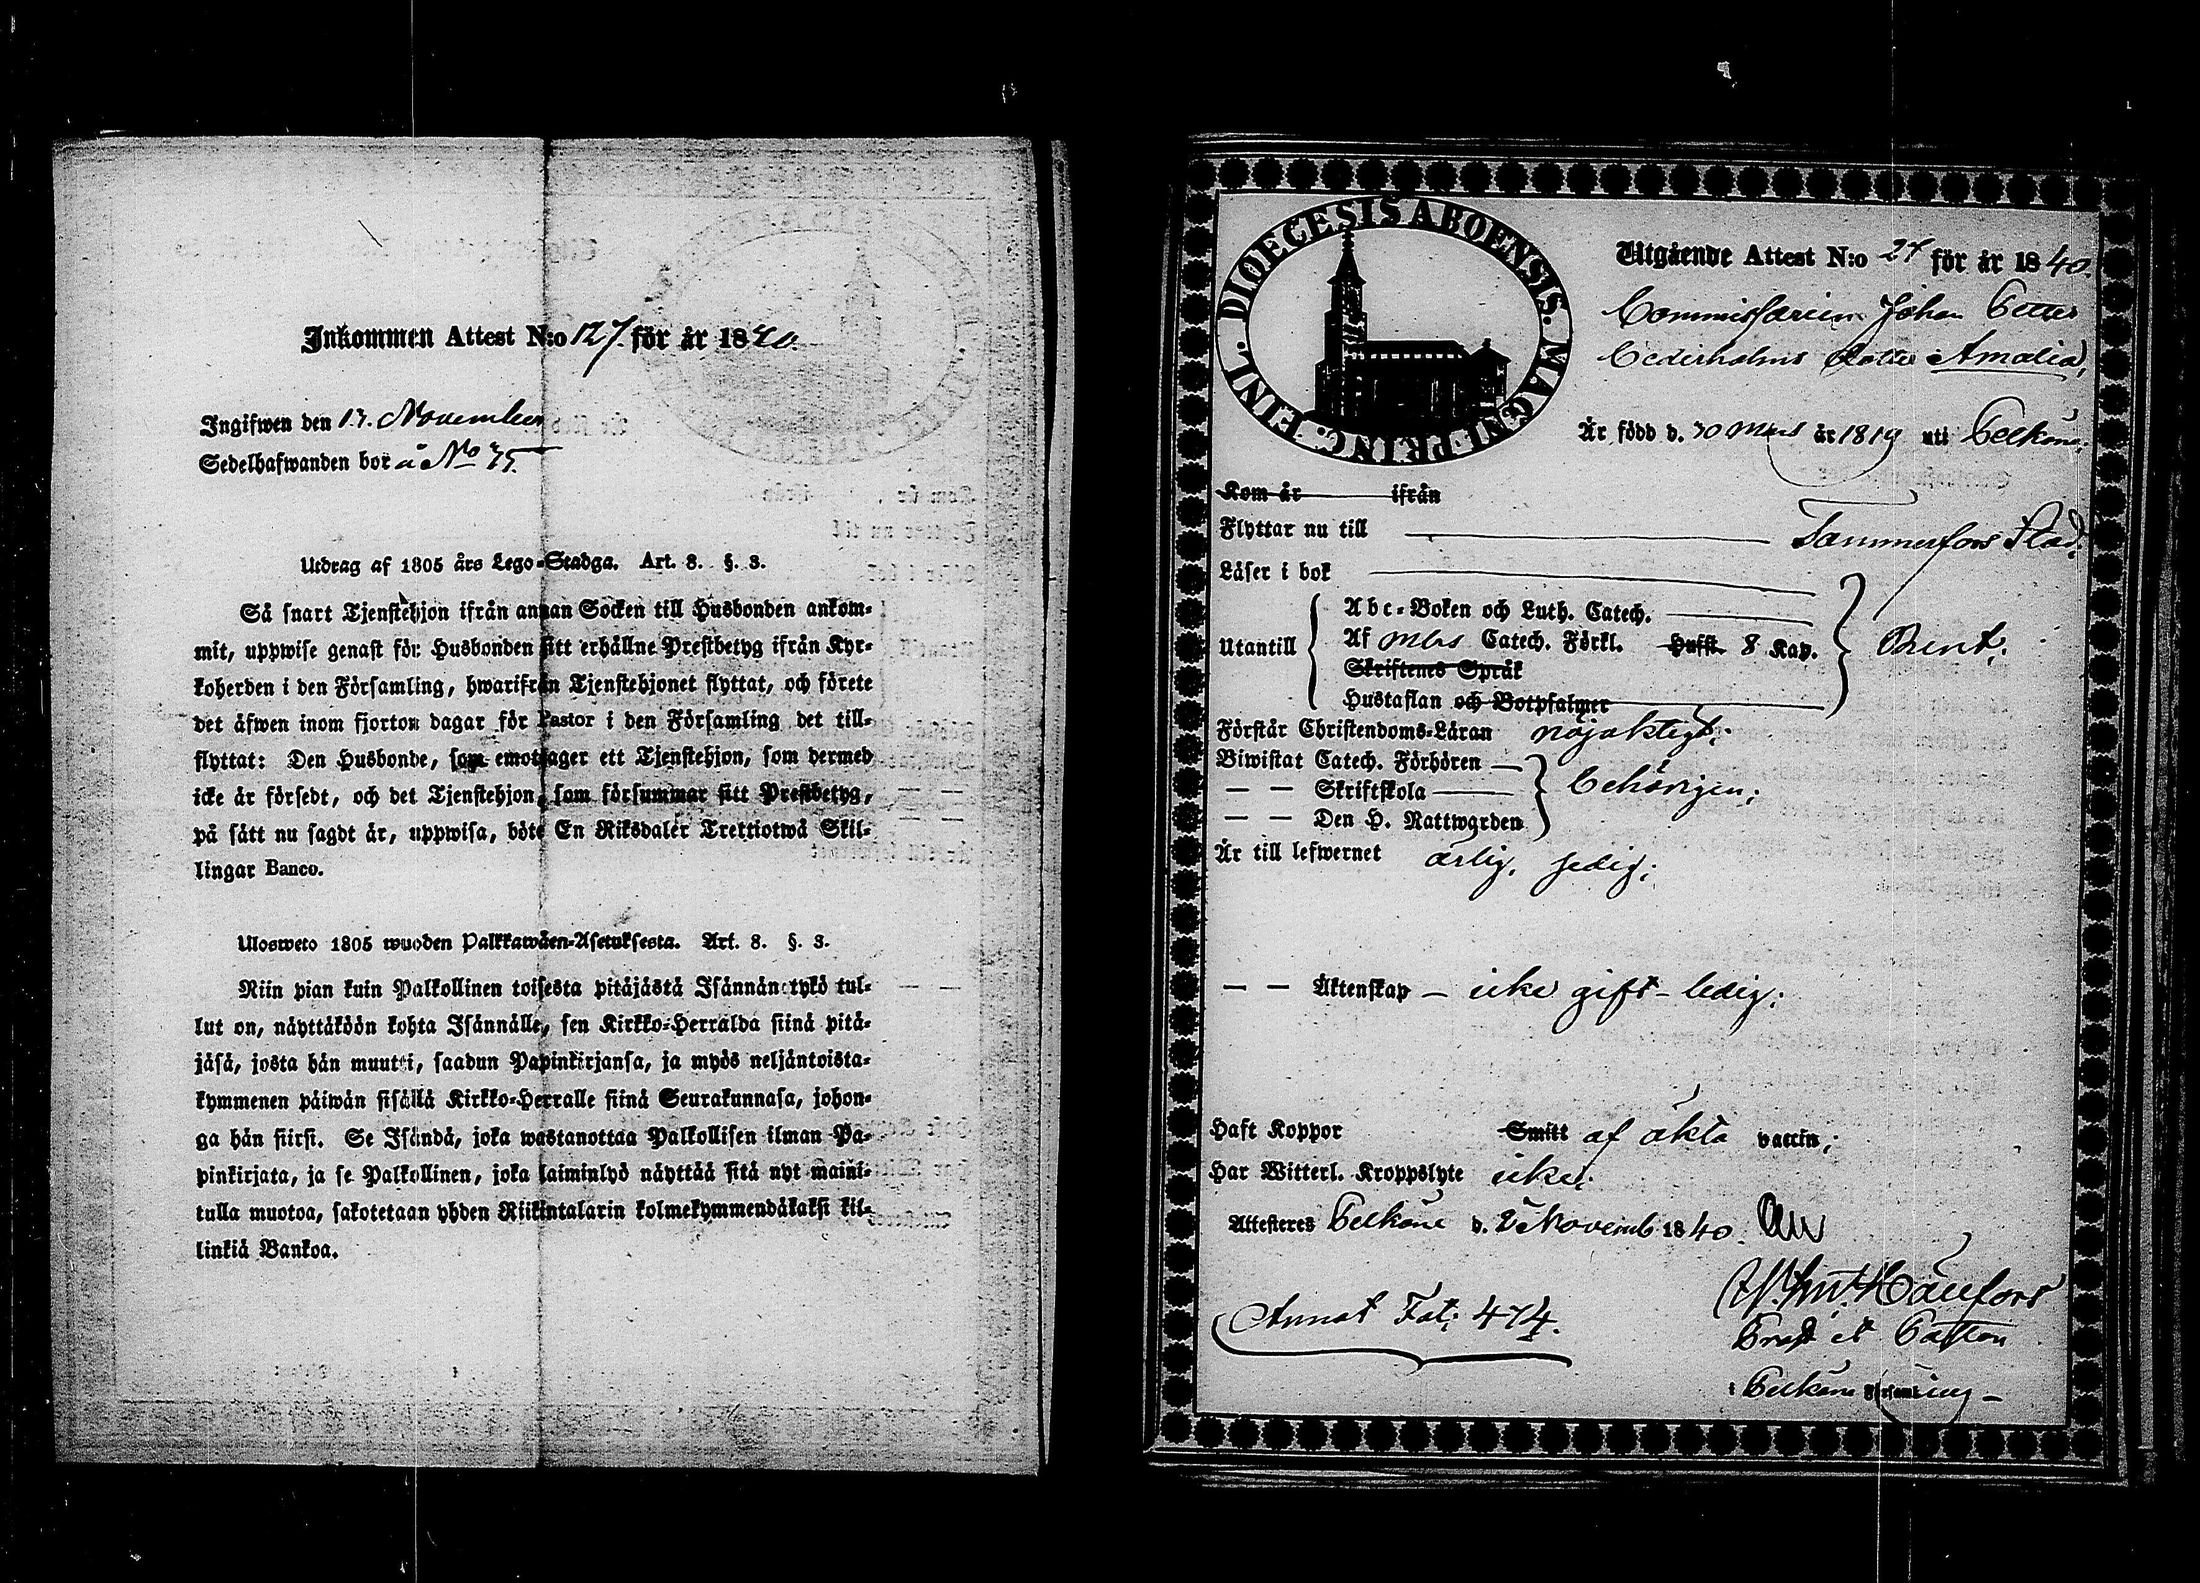 Inkommen Attest N:o 127. för år 1840.
Ingifwen den 13. November
Sedelhafwanden bor å No 75.
Utdrag af 1805 års Lego-Stadga. Art. 8. §. 3.
Så snart Tjenstehjon ifrån annan Socken till Husbonden ankom-
mit, uppwise genast för Husbonden sitt erhållne Prestbetyg ifrån Kyr-
koherden i den Församling, hwarifrån Tjenstehjonet flyttat, och förete
det äfwen inom fjorton dagar för Pastor i den Församling det till-
flyttat: Den Husbonde, som emottager ett Tjenstehjon, som dermed
icke är försedt, och det Tjenstehjon, som försummar sitt Prestbetyg,
på sätt nu sagdt är, uppwisa, böte En Riksdaler Trettiotwå Skil-
lingar Banco.
Ulosweto 1805 wuoden Palkkawäen-Asetuksesta. Art. 8. §. 3.
Niin pian kuin Palkollinen toisesta pitäjästä Isännän tykö tul-
lut on, näyttäköön kohta Isännälle, sen Kirkko-Herralda siinä pitä-
jäsä, josta hän muutti, saadun Papinkirjansa, ja myös neljäntoista-
kymmenen päiwän sisällä Kirkko-Herralle siinä Seurakunnasa, johon-
ga hän siirsi. Se Isändä, joka wastanottaa Palkollisen ilman Pa-
pinkirjata, ja se Palkollinen, joka laiminlyö näyttää sitä nyt maini-
tulla muotoa, sakotetaan yhden Riikintalarin kolmekymmendäkaksi kil-
linkiä Bankoa.
DIOECESIS ABOENSIS. MAGNI PRINC. FINL.
Utgående Attest N:o 27 för år 1840.
Commissarien Johan Petter
Cederholms dotter Amalia,
Är född d. 30 Mars år 1819 uti Pelkäne;
Kom år ifrån
Flyttar nu till Tammerfors Stad.
Läser i bok
Abc-Boken och Luth. Catech.
Utantill Af Mbs Catech. Förkl. Hufst. 8 Kap. Rent;
Skriftenes Språk
Hustaflan och Botpsalmer
Förstår Christendoms-Läran nöjaktigt;
Biwistat Catech. Förhören
— — Skriftskola behörigen;
— — Den H. Nattwarden
Är till lefwernet ärlig, sedig;
— — Äktenskap — icke gift - ledig;
Haft Koppor Smitt af äkta vaccin;
Har Witterl. Kroppslyte icke;
Attesteres Pelkäne d. 2 Novemb 1840.
Annot Fol: 474.
Prost et Pastor
i Pelkäne Församling —